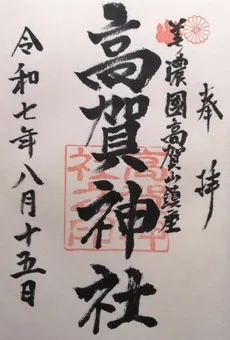 奉拝
美濃國高賀山鎮座
高賀神社
令和七年八月十五日
高賀神社之印